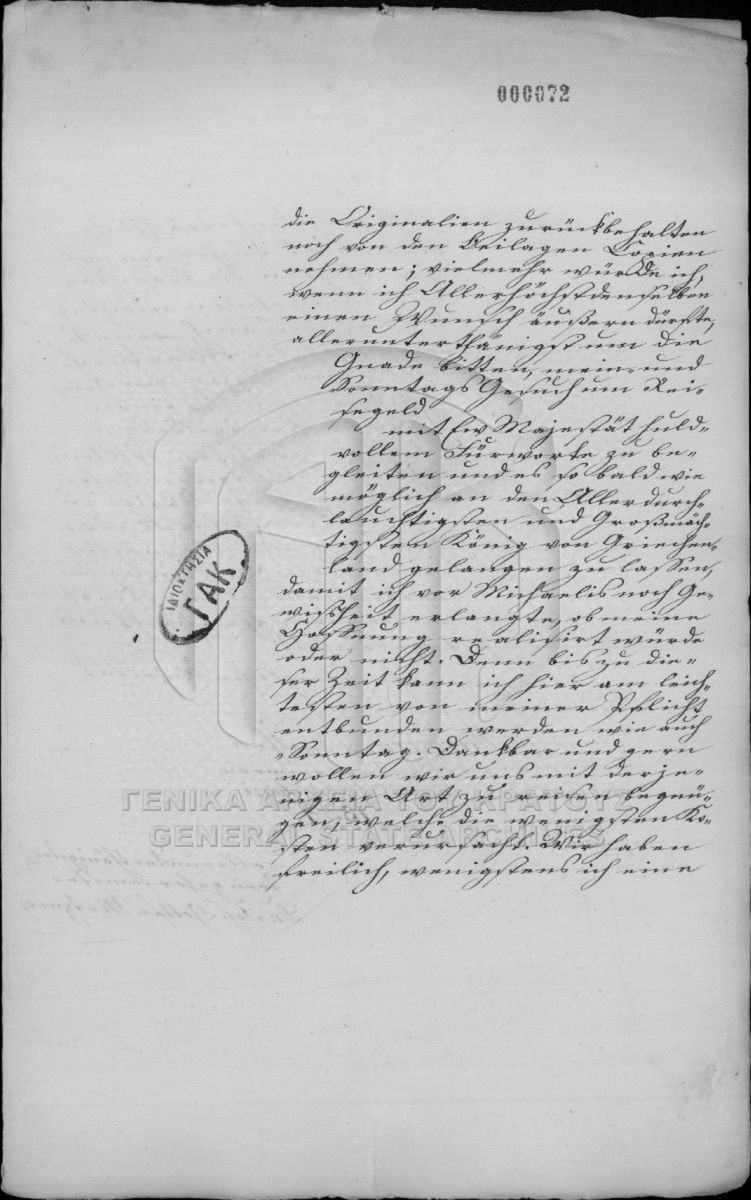 000072
die Originalien zurückbehalten
noch von den Beilagen Copien
nehmen; vielmehr würde ich,
wenn ich Allerhöchstdenselben
einen Wunsch äußern dürfte,
allerunterthänigst um die
Gnade bitten, mein- und
Sonntags Gesuch um Rei-
segeld
mit Ew Majestät huld-
vollem Fürworte zu be-
gleiten und es so bald wie
möglich an den Allerdurch-
lauchtigsten und Großmäch-
tigsten König von Griechen-
land gelangen zu lassen,
damit ich vor Michaelis noch Ge-
wißheit erlangte, ob meine
Hoffnung realisirt würde
oder nicht. Denn bis zu die-
ser Zeit kann ich hier am leich-
testen von meiner Pflicht
entbunden werden wie auch
Sonntag. Dankbar und gern
wollen wir uns mit derje-
nigen Art zu reisen begnü-
gen, welche die wenigsten Ko-
sten verursacht. Wir haben
freilich, wenigstens ich eine
ΙΔΙΟΚΤΗΣΙΑ
ΓΑΚ
ΓΕΝΙΚΑ ΑΡΧΕΙΑ ΤΟΥ ΚΡΑΤΟΥΣ
GENERAL STATE ARCHIVES